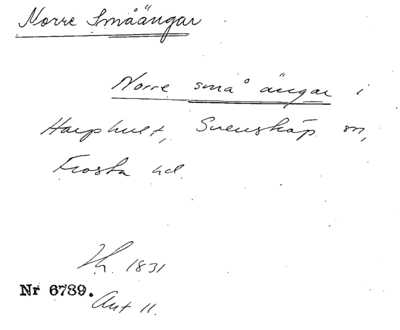 Norre Småängar
Norre små ängar i
Harphult, Svensköp sn,
Frosta hd.
Lh. 1831
Nr 6789.
Akt 11.